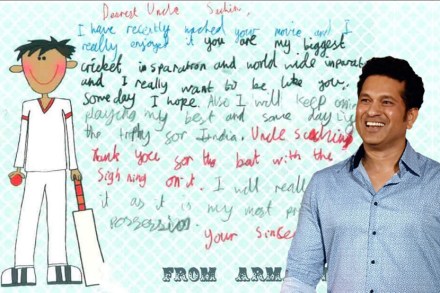 Dearest Uncle Sachin,
I have recently watched your movie and I
really enjoyed it you are my biggest
cricket inspiration and world wide
and I really want to be like you
someday I hope. Also I will keep
playing my best and some day
the trophy for India. Uncle
Thank you for the bat with the
Sighning on it. I will
it as it is my most
possession.
Your
FROM